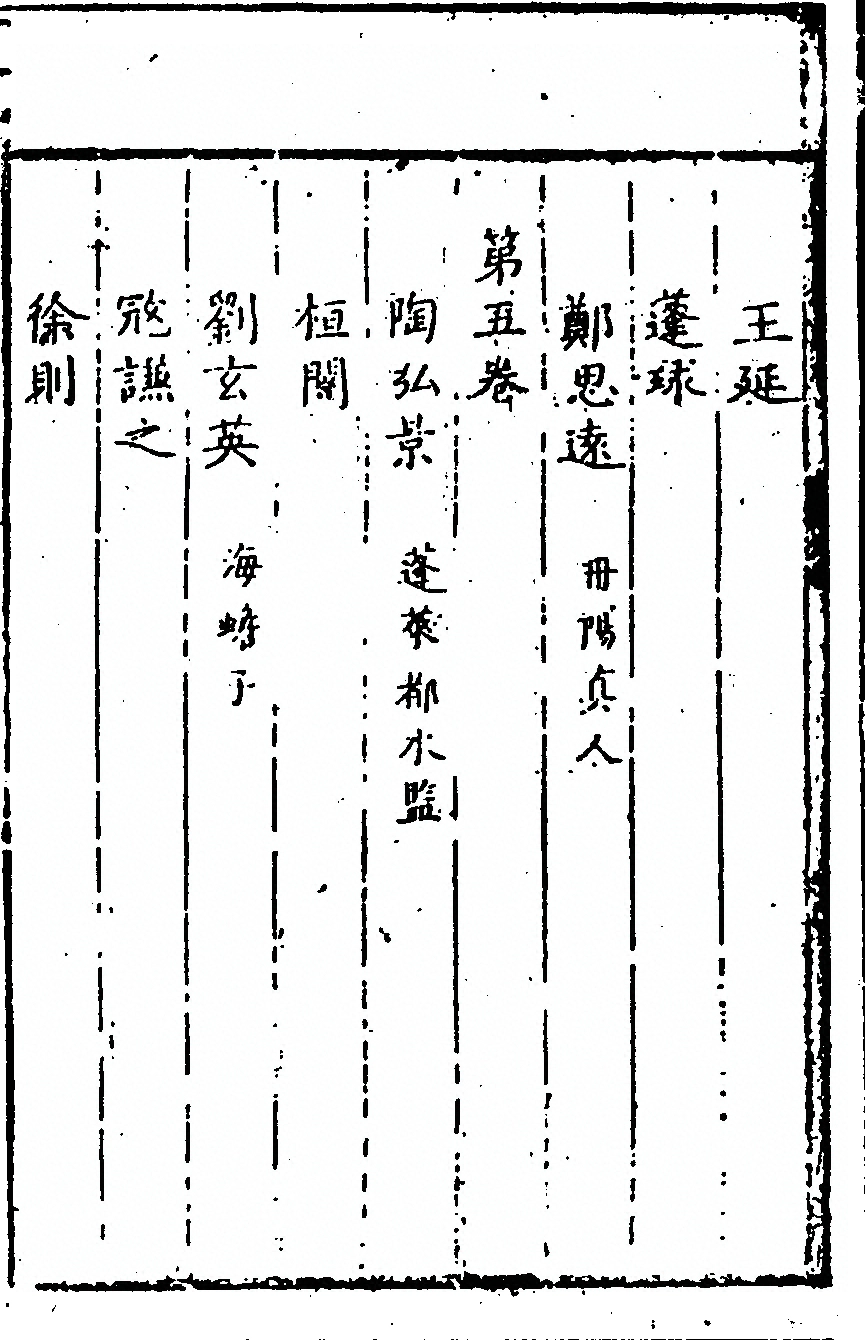 王延
蓬球
鄭思遠 丹陽真人
第五卷
陶弘景 蓬萊都水監
桓闓
劉玄英 海蟾子
寇謙之
徐則